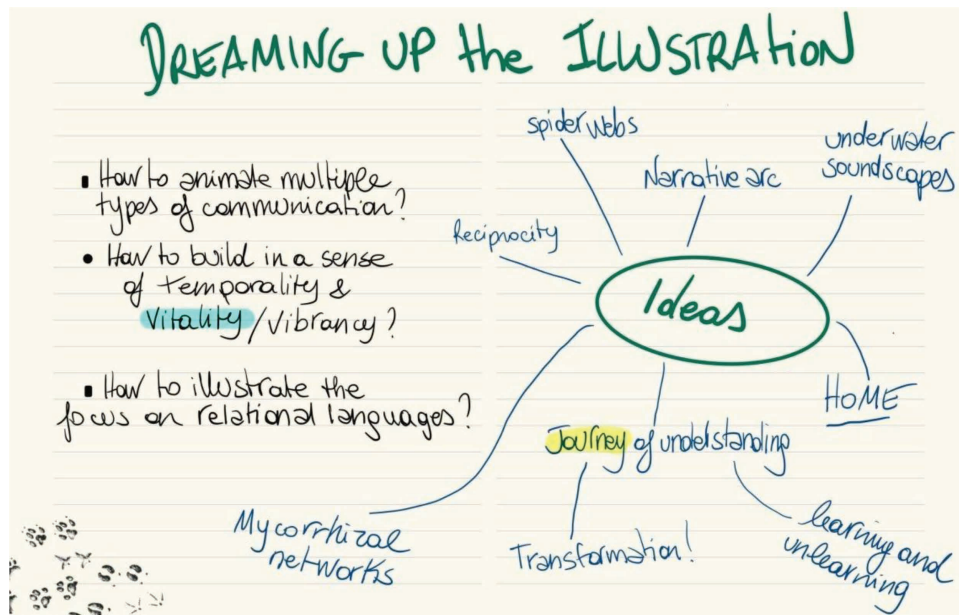 DREAMING UP the ILLUSTRATION
▪ How to animate multiple
types of communication?
• How to build in a sense
of temporality &
Vitality/Vibrancy?
▪ How to illustrate the
focus on relational languages?
spider webs
Narrative arc
underwater
soundscapes
Reciprocity
Ideas
HOME
Journey of understanding
Mycorrhizal
networks
Transformation!
learning and
unlearning